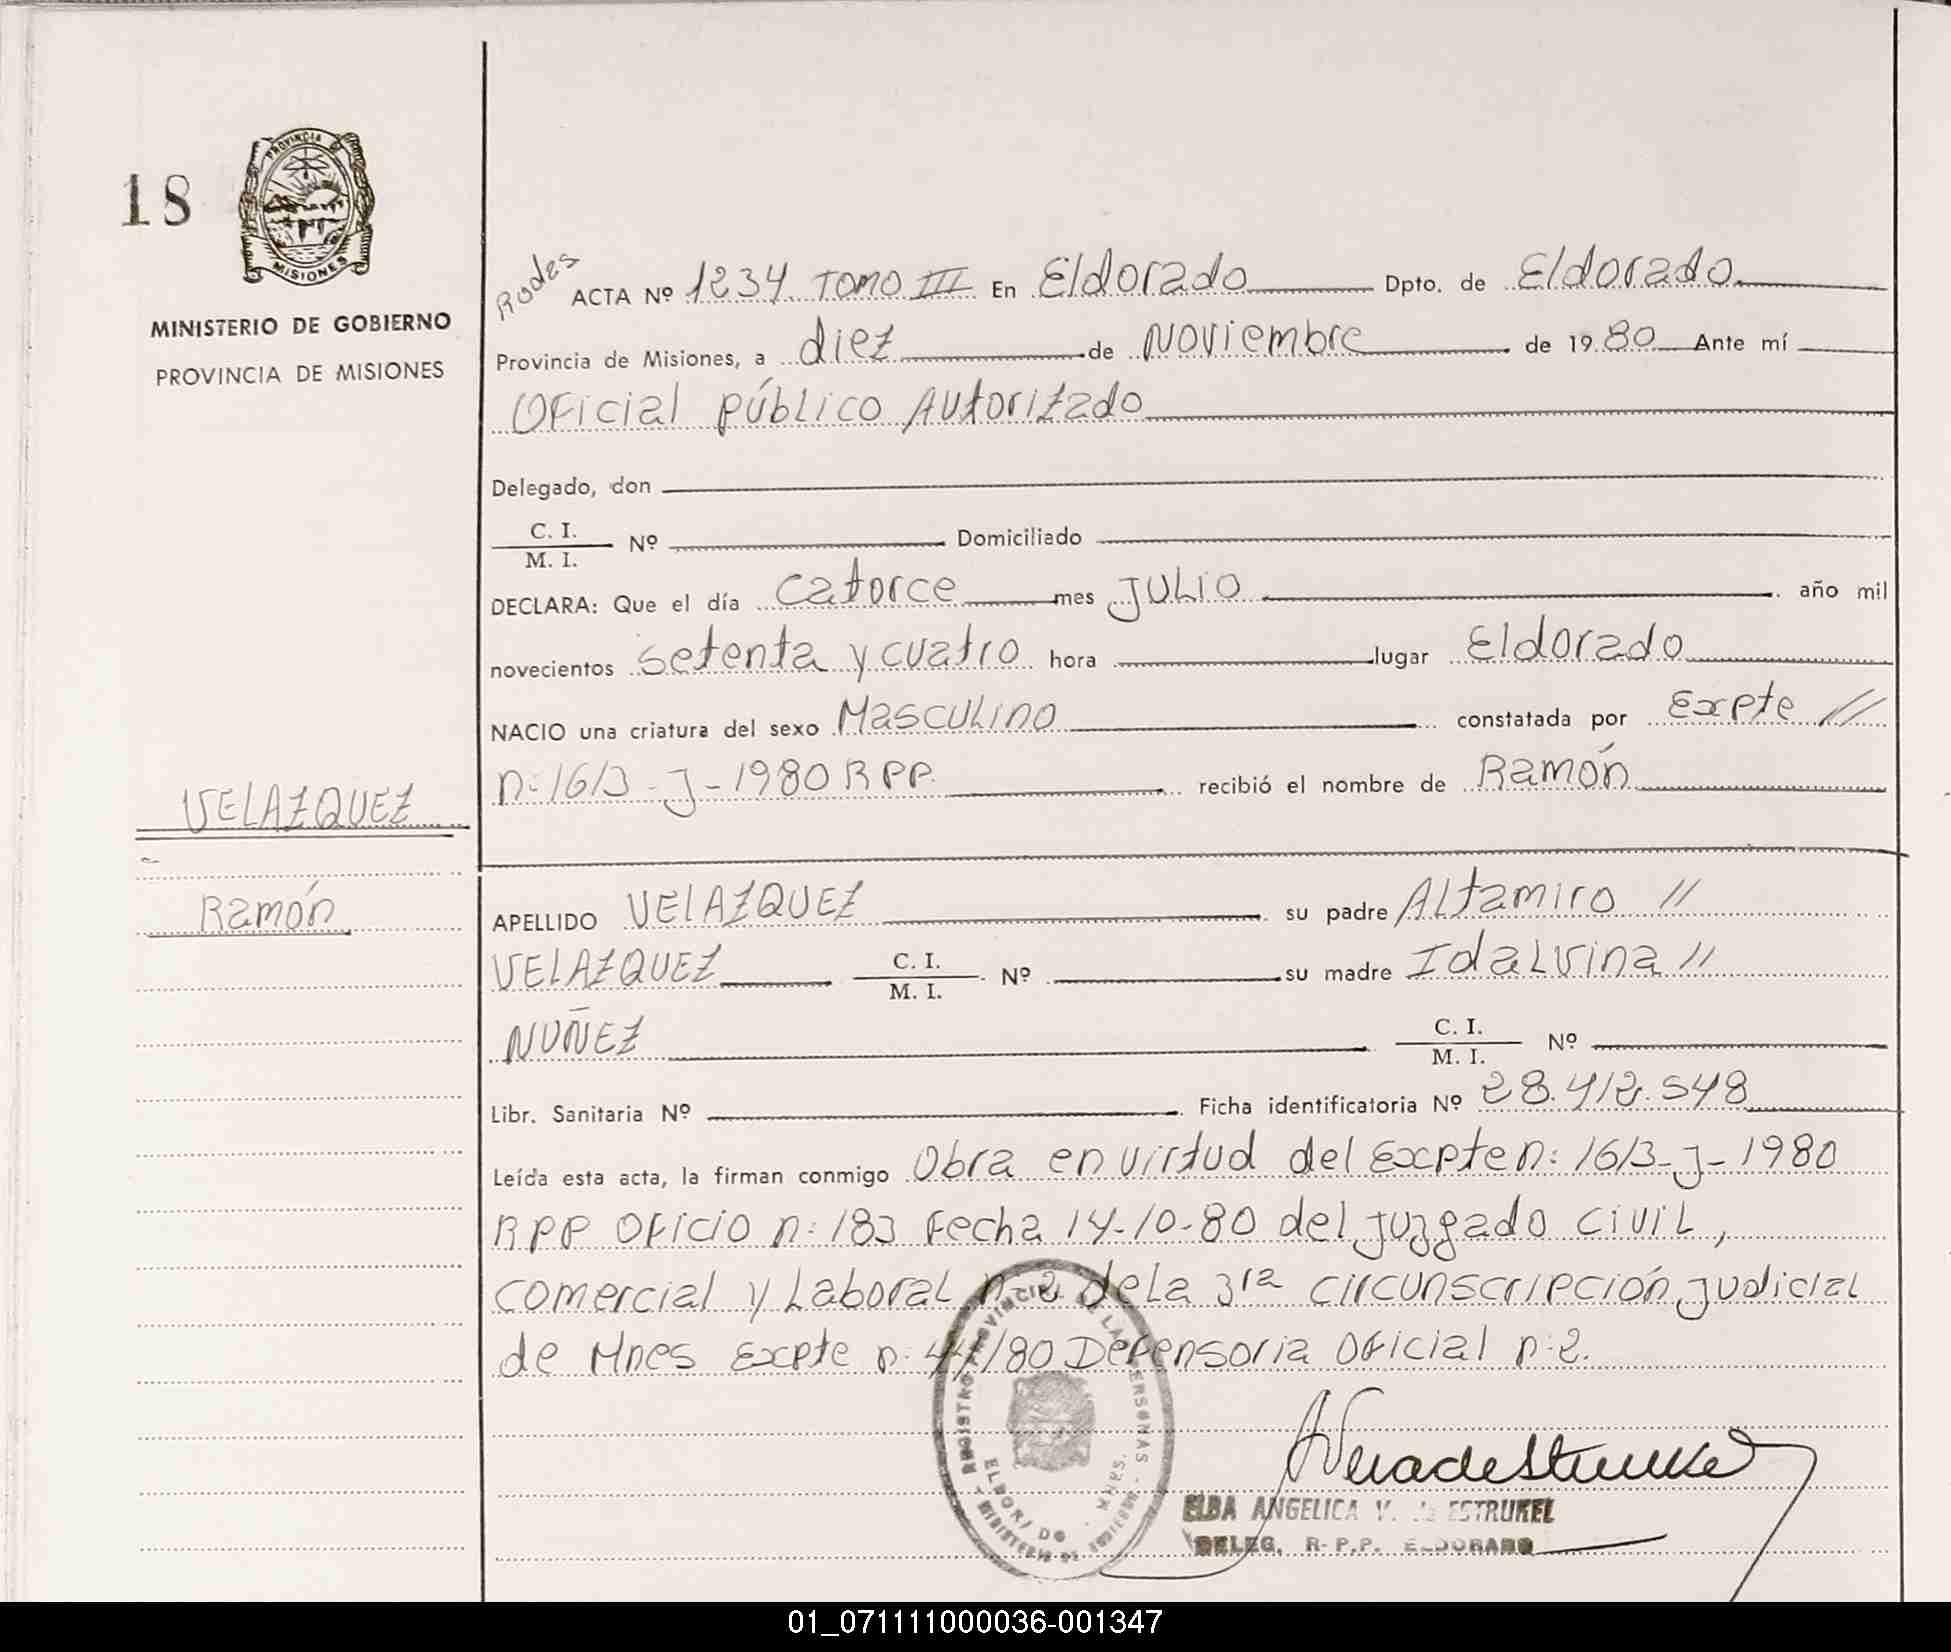 18
PROVINCIA
MISIONES
MINISTERIO DE GOBIERNO
PROVINCIA DE MISIONES
VELAZQUEZ
Ramón
Rodes ACTA Nº 1234 TOMO III En Eldorado Dpto. de Eldorado
Provincia de Misiones, a diez de Noviembre de 1980 Ante mí
Oficial Público Autorizado
Delegado, don
C. I.
M. I. Nº Domiciliado
DECLARA: Que el día catorce mes Julio año mil
novecientos setenta y cuatro hora lugar Eldorado
NACIO una criatura del sexo Masculino constatada por Expte //
n: 1613-J-1980 RPP. recibió el nombre de Ramón
APELLIDO VELAZQUEZ su padre Altamiro //
VELAZQUEZ C. I. M. I. Nº su madre Idalvina //
NUÑEZ C. I. M. I. Nº
Libr. Sanitaria Nº Ficha identificatoria Nº 28.412.548
Leída esta acta, la firman conmigo Obra en virtud del Expte n: 1613-J-1980
RPP Oficio n: 183 Fecha 14-10-80 del Juzgado Civil,
comercial y Laboral n-2 de la 3ra circunscripción Judicial
de Mnes Expte n: /80 Defensoria Oficial n:2.
REGISTRO PROVINCIAL DE LAS PERSONAS
ELDORADO - MNES.
MINISTERIO DE GOBIERNO
ELBA ANGELICA V. de ESTRUKEL
DELEG. R.P.P. ELDORADO
01_071111000036-001347